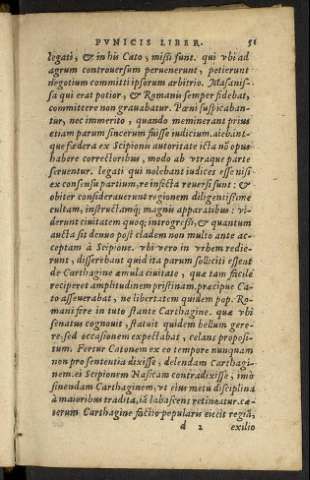 PVNICIS LIBER. 51
legati, & in his Cato, missi sunt. qui vbi ad
agrum controuersum peruenerunt, petierunt
negotium committi ipsorum arbitrio. Masanis-
sa qui erat potior, & Romanis semper fidebat,
committere non grauabatur. Pœni suspicaban-
tur, nec immerito, quando meminerant prius
etiam parum sincerum fuisse iudicium. aiebant-
que fœdera ex Scipionis autoritate icta nō opus
habere correctoribus, modo ab vtraque parte
seruentur. legati qui nolebant iudices esse nisi
ex consensu partium, re infecta reuersi sunt: &
obiter considerauerunt regionem diligentissime
cultam, instructamq; magnis apparatibus: vi-
derunt ciuitatem quoq; introgressi, & quantum
aucta sit denuo post cladem non multo ante ac-
ceptam à Scipione. vbi vero in vrbem redie-
runt, disserebant quid ita parum solliciti esseat
de Carthagine æmula ciuitate, quæ tam facile
reciperet amplitudinem pristinam. præcipue Ca-
to asseuerabat, ne libertatem quidem pop. Ro-
mani fore in tuto stante Carthagine. quæ vbi
senatus cognouit, statuit quidem bellum gere-
re: sed occasionem expectabat, celans proposi-
tum. Fertur Catonem ex eo tempore nunquam
non pro sententia dixisse, delendam Carthagi-
nem. ei Scipionem Nasicam contradixisse, imò
sinendam Carthaginem, vt eius metu disciplina
à maioribus tradita, iā labascens retineatur. cæ-
terum Carthagine factio popularis eiecit regiā,
d 2 exilio